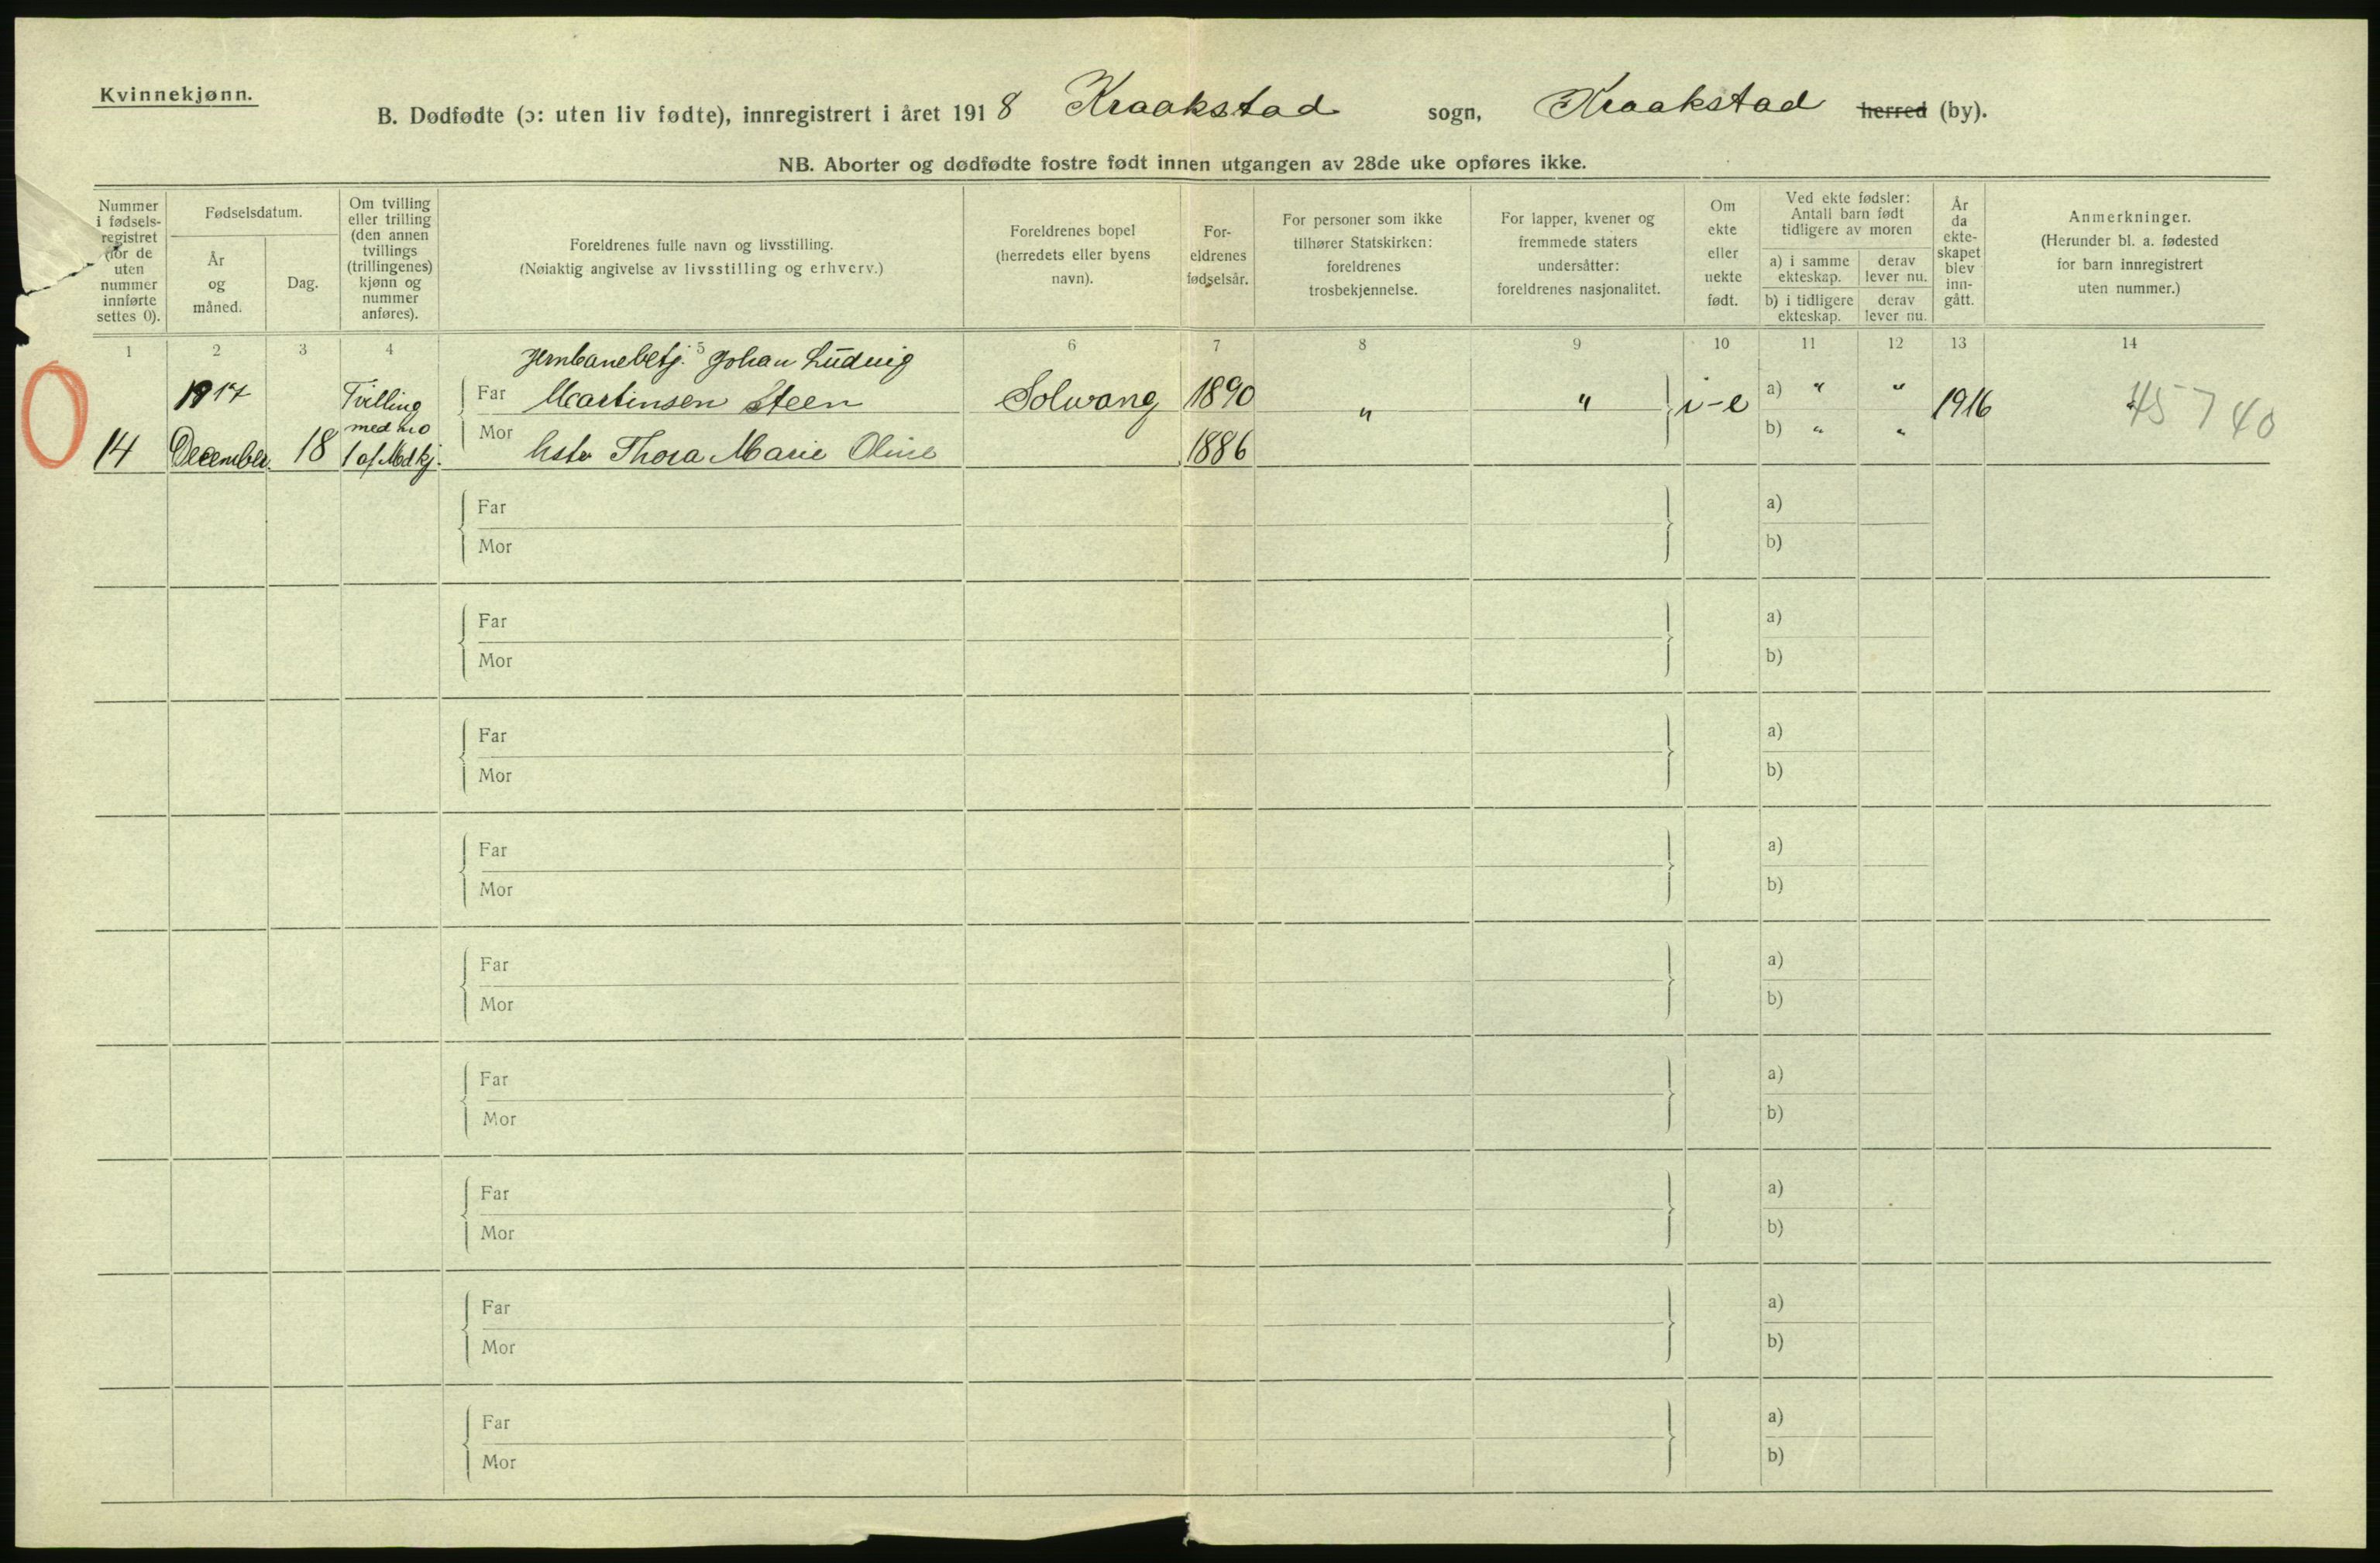 Kvinnekjønn.
B. Dødfødte (ɔ: uten liv fødte), innregistrert i året 1918 Kraakstad sogn, Kraakstad herred (by).
NB. Aborter og dødfødte fostre født innen utgangen av 28de uke opføres ikke.
Nummer i fødsels-registret (for de uten nummer innførte settes 0).
Fødselsdatum.
År og måned.
Dag.
Om tvilling eller trilling (den annen tvillings (trillingenes) kjønn og nummer anføres).
Foreldrenes fulle navn og livsstilling.
(Nøiaktig angivelse av livsstilling og erhverv.)
Foreldrenes bopel (herredets eller byens navn).
For-eldrenes fødselsår.
For personer som ikke tilhører Statskirken: foreldrenes trosbekjennelse.
For lapper, kvener og fremmede staters undersåtter: foreldrenes nasjonalitet.
Om ekte eller uekte født.
Ved ekte fødsler: Antall barn født tidligere av moren
a) i samme ekteskap.
derav lever nu.
b) i tidligere ekteskap.
derav lever nu.
År da ekte-skapet blev inn-gått.
Anmerkninger.
(Herunder bl. a. fødested for barn innregistrert uten nummer.)
1 2 3 4 5 6 7 8 9 10 11 12 13 14
Jernbanebetj. Johan Ludvig
1917 Tvilling Far Martinsen Steen Solwang 1890 " " i-e a) " " 1916 45 7 40
med no Mor b) " "
14 December 18 1 af Mdkj. Thora Marie Oline 1886
Far a)
Mor b)
Far a)
Mor b)
Far a)
Mor b)
Far a)
Mor b)
Far a)
Mor b)
Far a)
Mor b)
Far a)
Mor b)
Far a)
Mor b)
Far a)
Mor b)